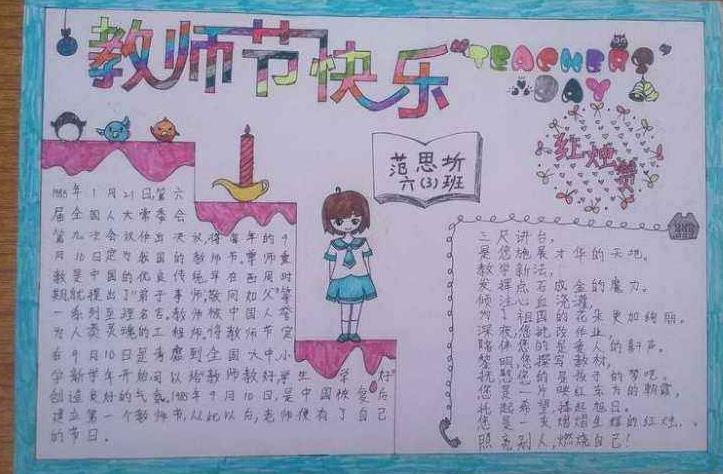 教师节快乐
"TEACHERS'
DAY
红烛赞
范思圻
六(3)班
1985年1月21日,第六
届全国人大常委会
第九次会议作出决议,将每年的9
月10日定为我国的教师节。尊师重
教是中国的优良传统,早在西周时
期就提出了"弟子事师,敬同如父"等
一系列至理名言,教师被中国人誉
为人类灵魂的工程师,将教师节定
在9月10日是考虑到全国大中小
学新学年开始,可以给教师教好,学生学好
创造良好的气氛,1985年9月10日,是中国恢复后
建立第一个教师节,从此以后,老师便有了自己
的节日。
三尺讲台,
是您施展才华的天地。
教学新法,
发挥点石成金的魔力。
倾注心血浇灌,
为了祖国的花朵更加绚丽。
深夜,您批改作业,
陪伴您的是爱人的鼾声。
黎明,您撰写教材,
抚慰您的是孩子的梦呓。
您是一片映红东方的朝霞,
托起希望,捧起旭日。
您是一支熠熠生辉的红烛,
照亮别人,燃烧自己!